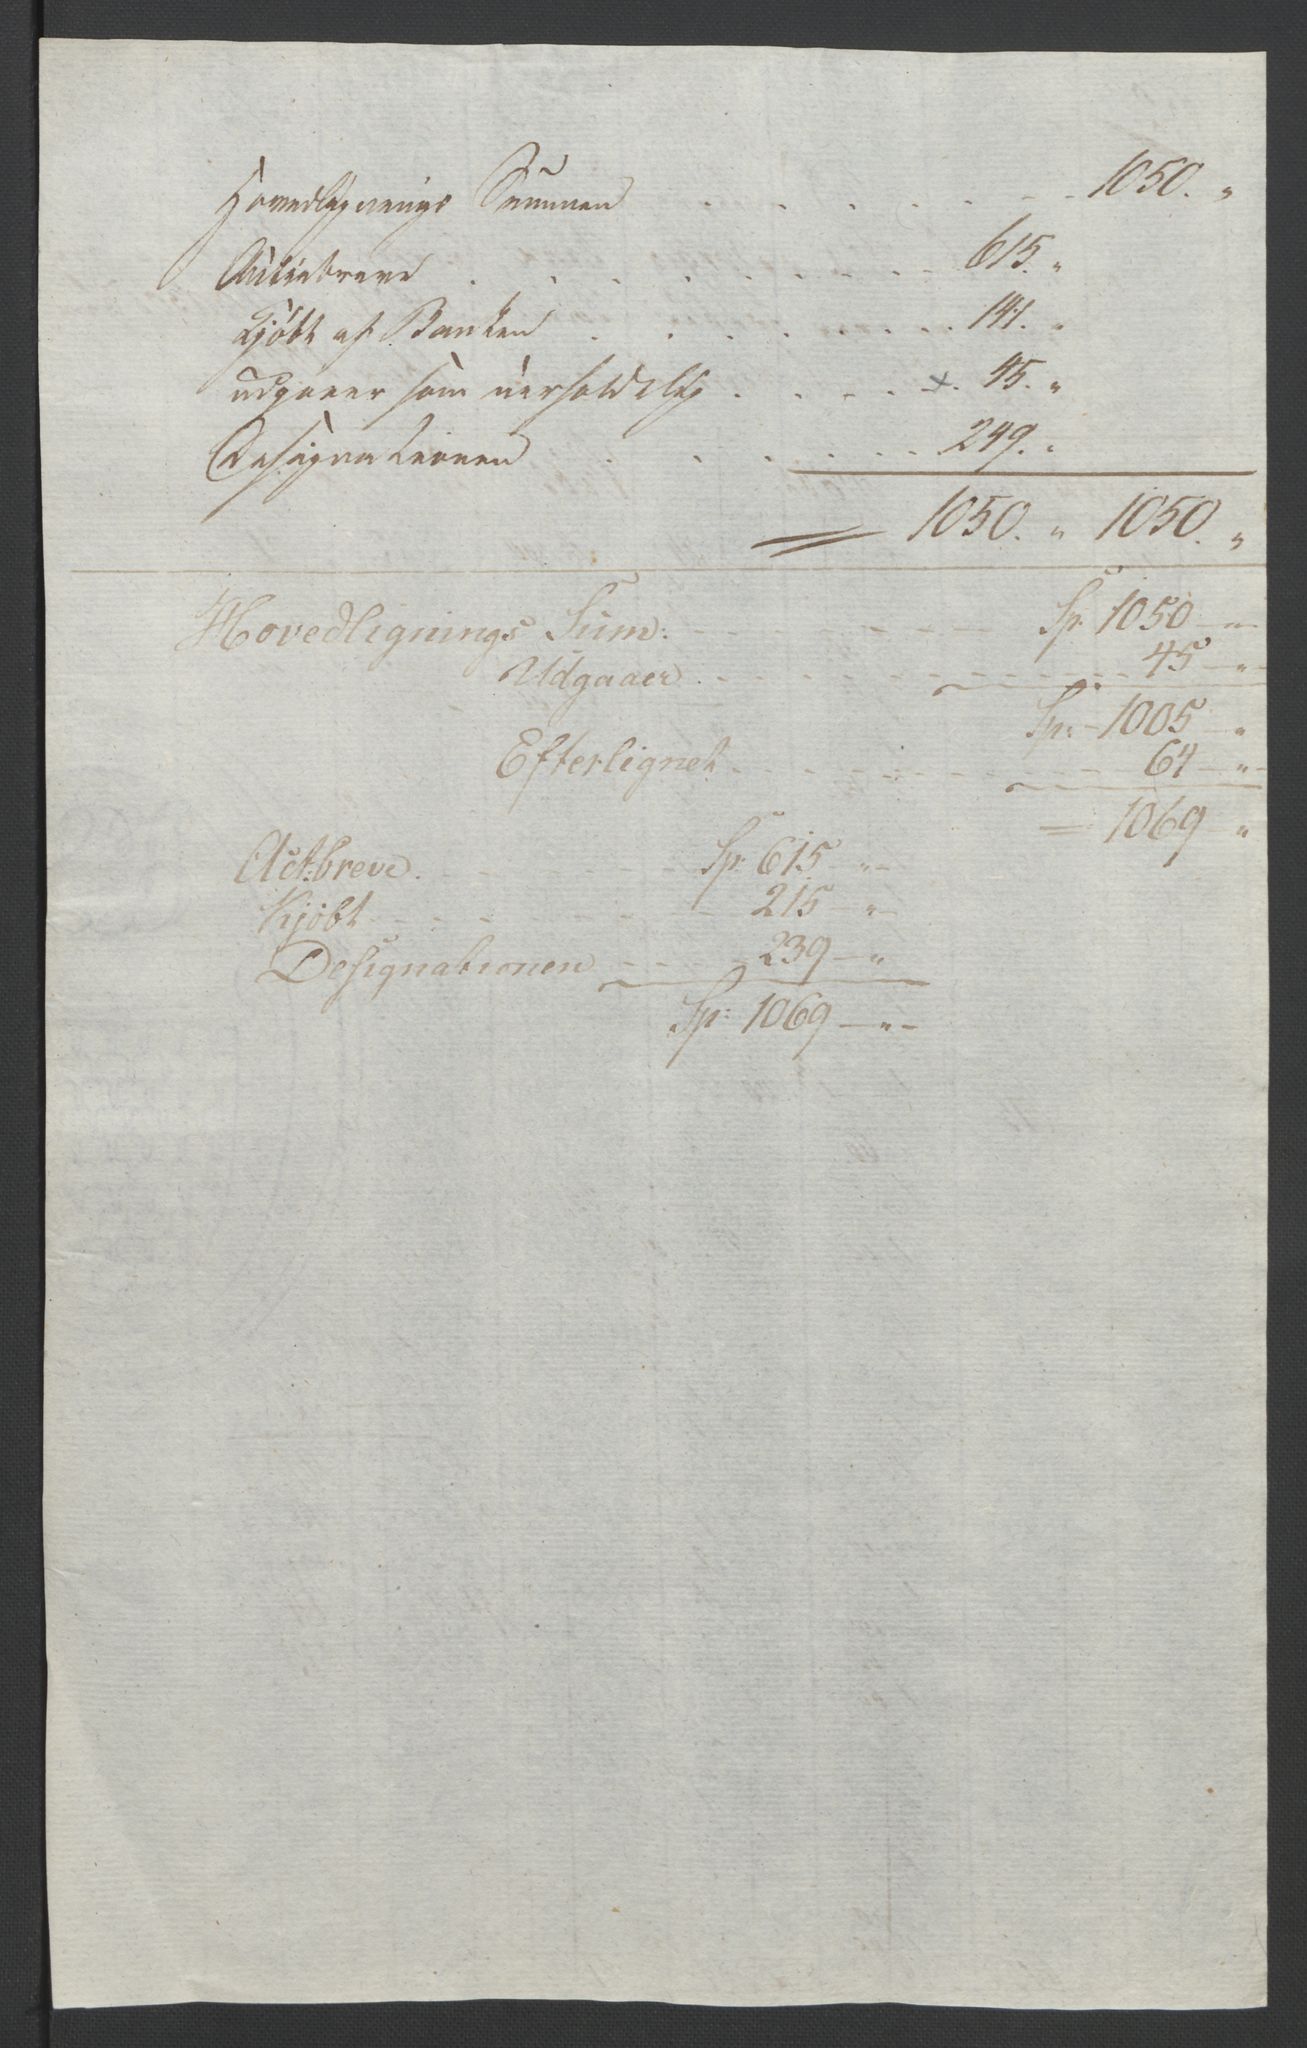 Hovedlignings Summen . . . . . . . 1050. "
Actiebreve . . . . . . . . 615. "
Kjöbt af Banken . . . . . . . 141. "
udgaaer som uerholdelig . . . . x. 45. "
Designationen . . . . . . 249. "
1050. " 1050. "
Hovedlignings Sum: Sp. 1050 - "
Udgaaer 45 - "
Sp: 1005 "
Efterlignet 64 - "
= 1069 "
Act:breve. Sp. 615 - "
Kjöbt 215 - "
Designationen 239 - "
Sp: 1069 - " -